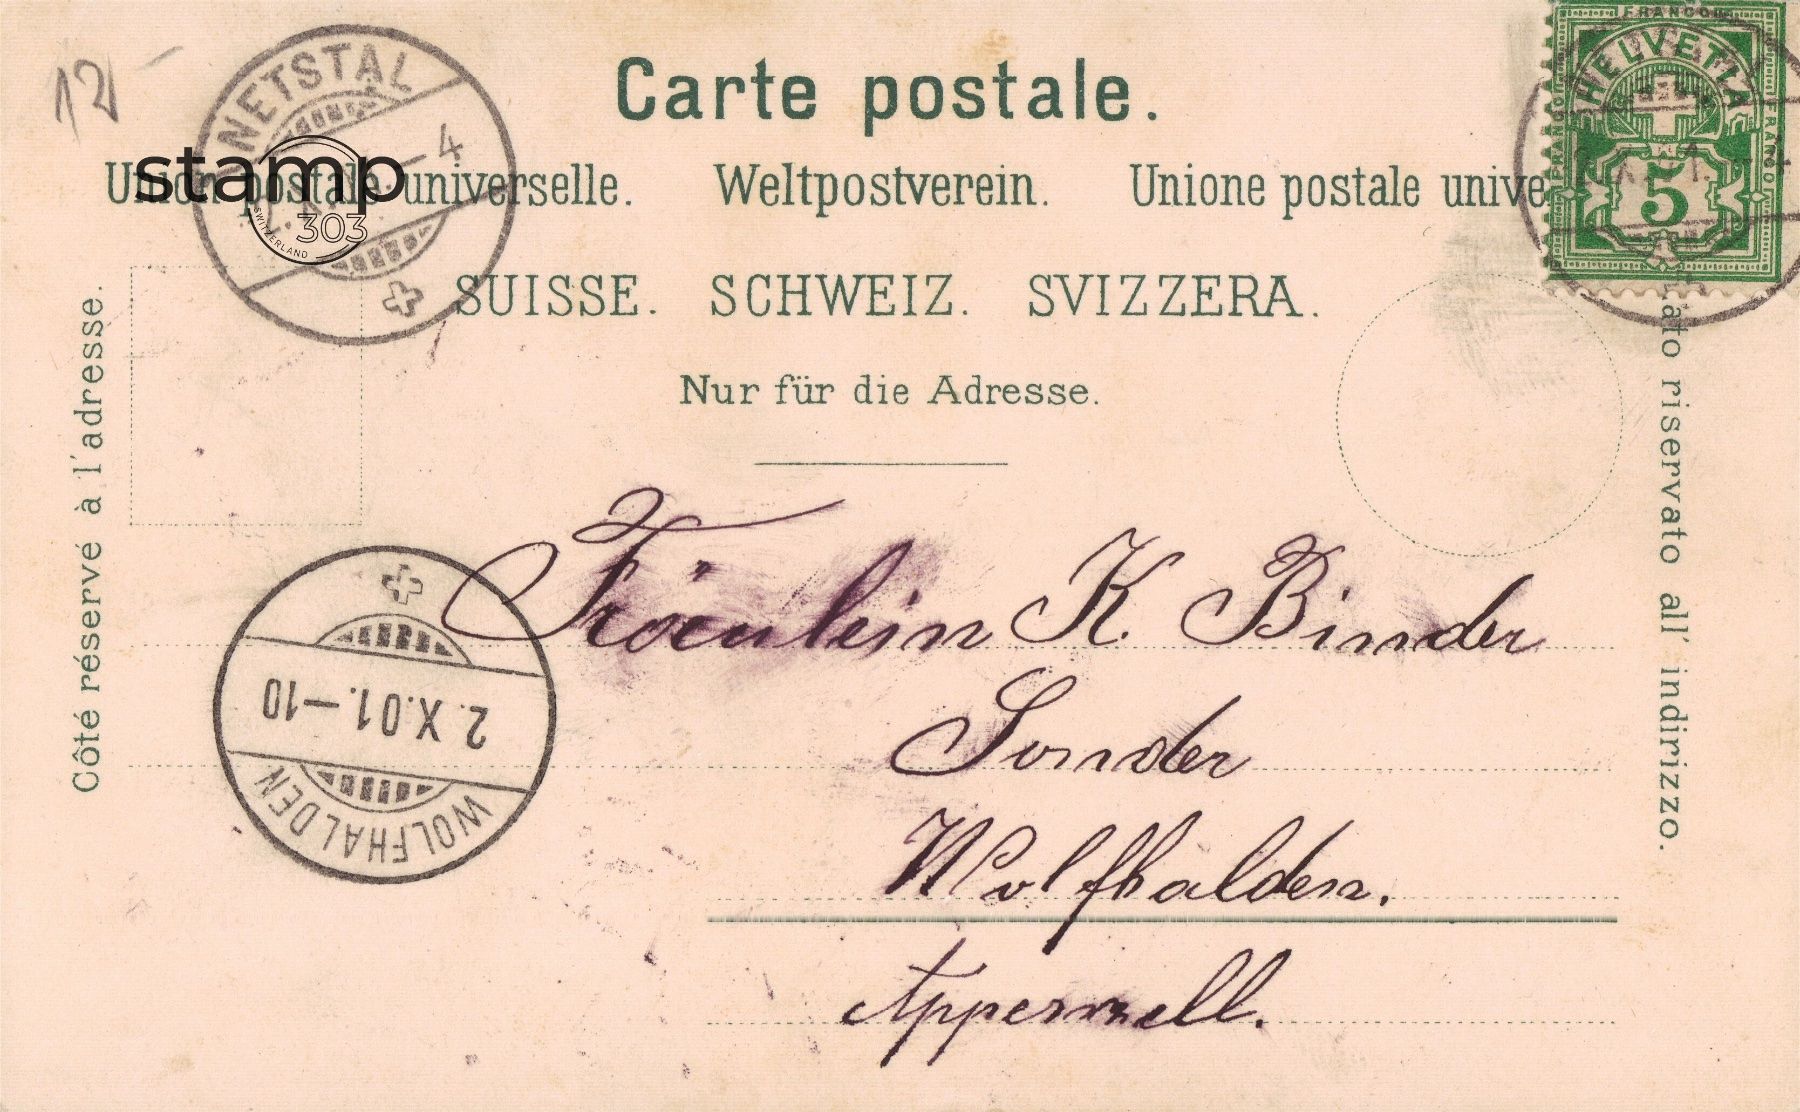 12
NETSTAL
–4
stamp
303
SWITZERLAND
Carte postale.
FRANCO
HELVETIA
FRANCO
FRANCO
5
Union postale universelle. Weltpostverein. Unione postale unive
SUISSE. SCHWEIZ. SVIZZERA.
Nur für die Adresse.
Côté réservé à l'adresse.
Lato riservato all' indirizzo.
Fräulein K. Binder
Sonder
Wolfhalden.
Appenzell.
2.X.01.–10
WOLFHALDEN